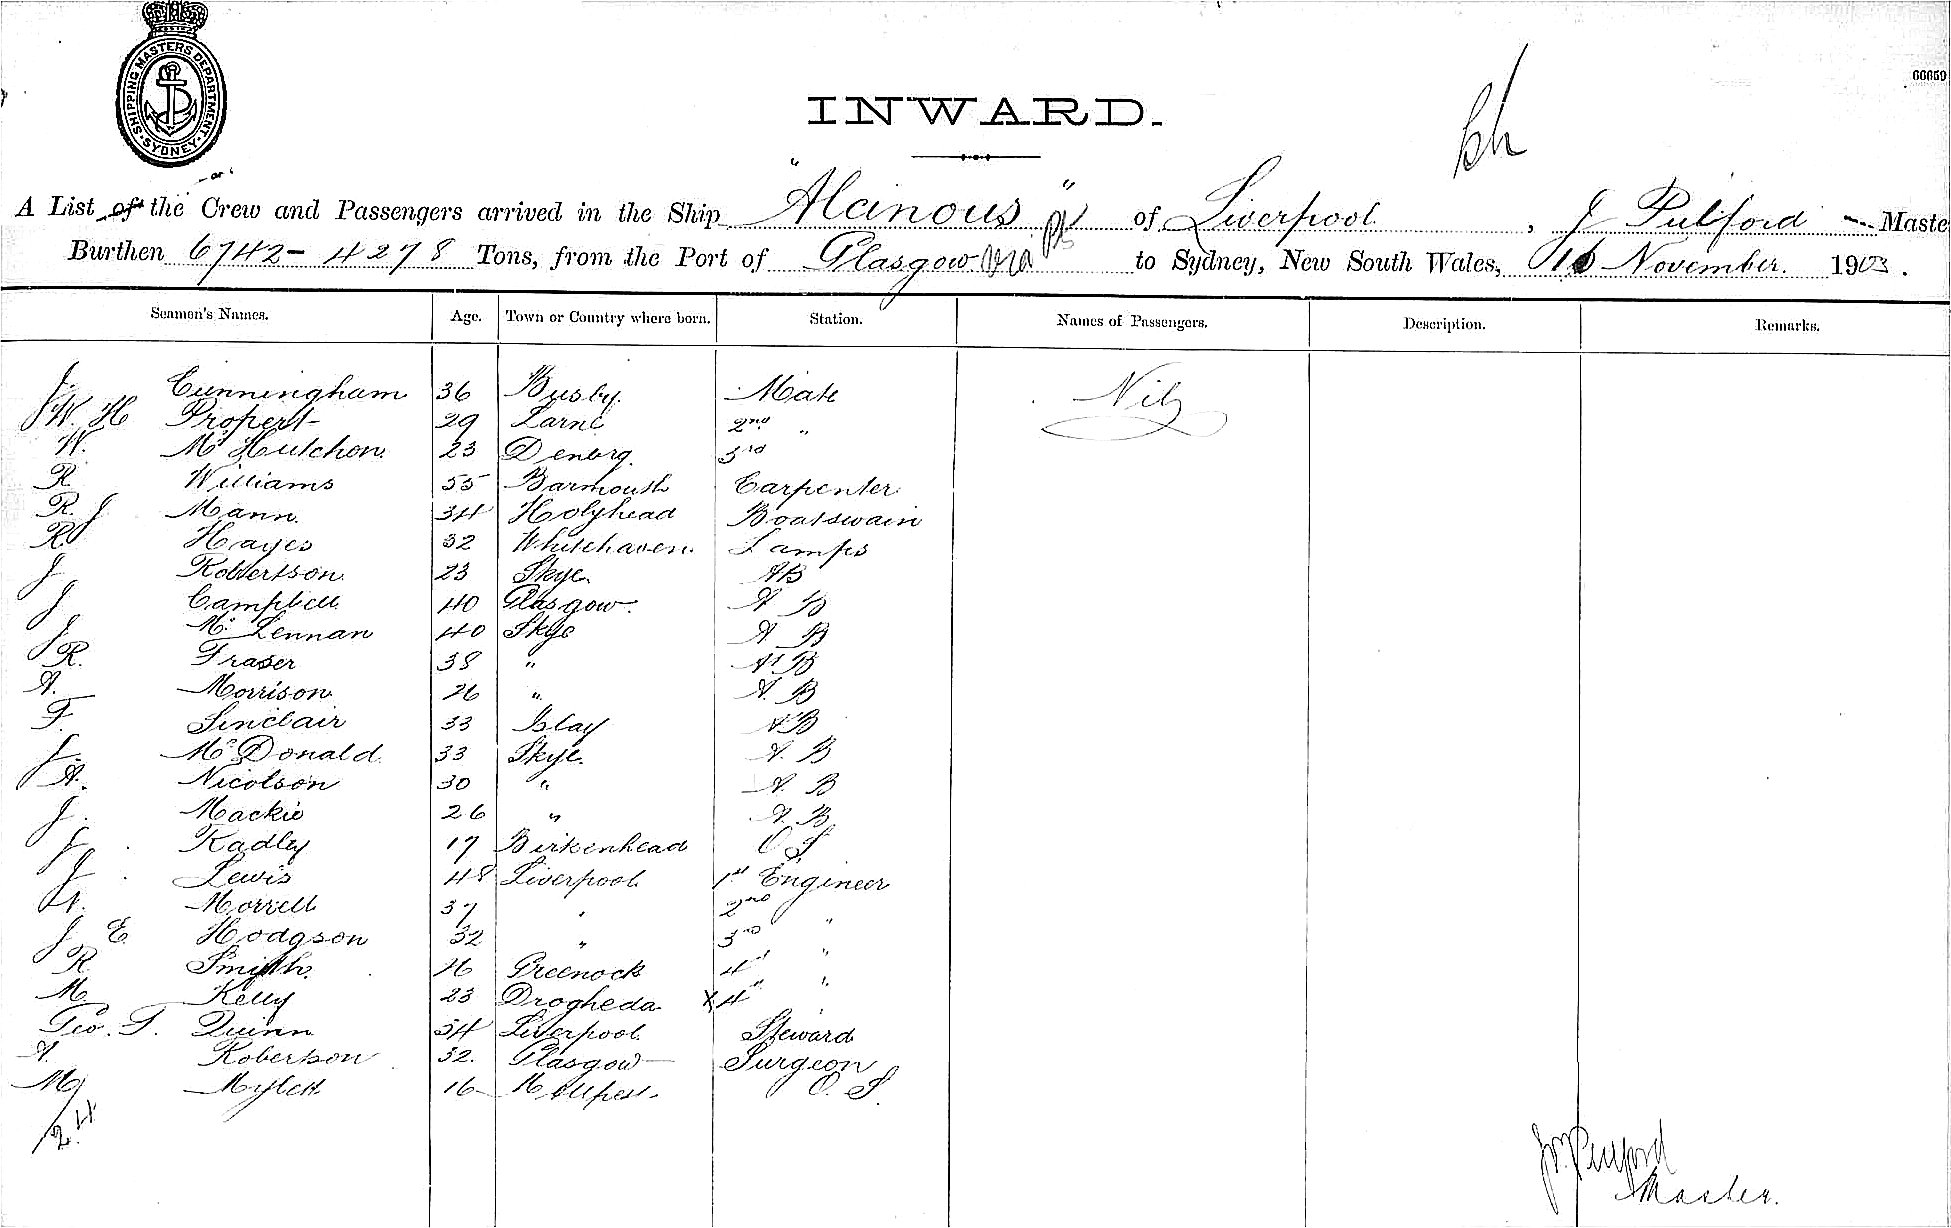 SHIPPING MASTERS DEPARTMENT
· SYDNEY ·
66659
INWARD.
A List of the Crew and Passengers arrived in the Ship "Alcinous" of Liverpool, J Pulford Maste
Burthen 6742 - 4278 Tons, from the Port of Glasgow via to Sydney, New South Wales, November. 1903.
Seamen's Names. Age. Town or Country where born. Station. Names of Passengers. Description. Remarks.
J. Cunningham 36 Busby. Mate Nil
J W. H Propert 29 Larne 2nd "
W. Mc Hutchon. 23 3rd
R Williams 55 Barmouth Carpenter
R. J Mann. 34 Holyhead Boatswain
R. Hayes 32 Whitehaven. Lamps
J Robertson. 23 Skye. AB
J Campbell 40 Glasgow. A B
J Mc Lennan 40 Skye A. B
R. Fraser 38 " A B
A. Morrison 26 " A. B
F. Sinclair 33 Islay AB
J. McDonald. 33 Skye. A. B
A. Nicolson 30 " A. B
J. Mackie 26 " A. B
J. Radley 17 Birkenhead O S
J. Lewis 48 Liverpool 1st Engineer
Morrell 37 " 2nd
J E. Hodgson 32 " 3rd "
R Smith. 26 Greenock 4" "
M. Kelly 23 Drogheda X 4" "
Geo. T. Quinn 54 Liverpool. Steward
A. Robertson 32. Glasgow Surgeon
M 16 O. S.
24
Pulford
Master.